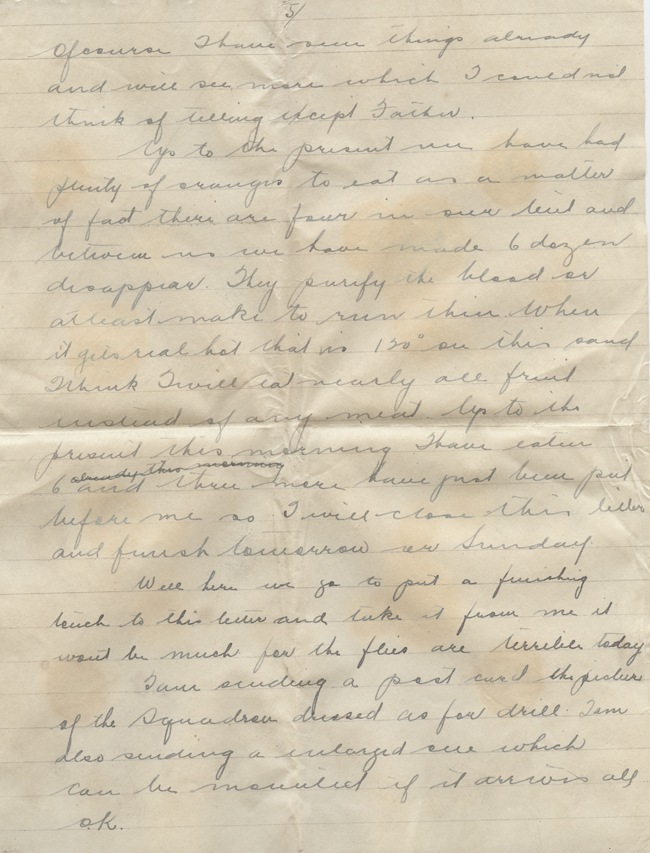 5/
Of course I have seen things already
and will see more which I could not
think of telling except Father.
Up to the present we have had
plenty of oranges to eat as a matter
of fact there are four in our tent and
between us we have made 6 dozen
disappear. They purify the blood or
atleast make to run thin. When
it gets real hot that is 120° on this sand
I think I will eat nearly all fruit
instead of any meat. Up to the
present this morning I have eaten
already this morning
6 and three more have just been put
before me so I will close this letter
and finish tomorrow or Sunday.
Well here we go to put a finishing
touch to this letter and take it from me it
wont be much for the flies are terrible today
I am sending a post card the picture
of the Squadron dressed as for drill. I am
also sending a enlarged one which
can be mounted if it arrives all
o.k.